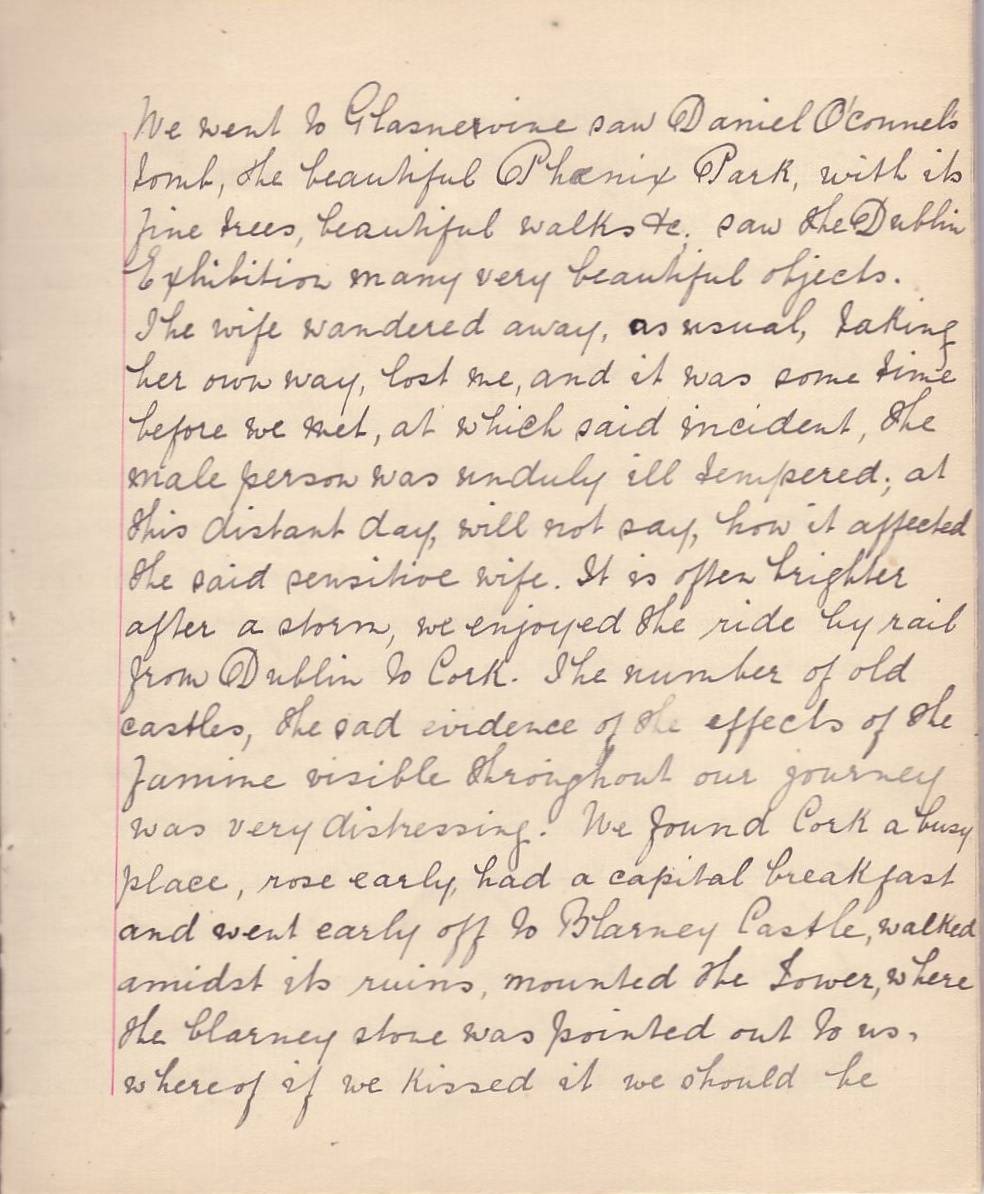 We went to Glasnervine saw Daniel O'connel's
tomb, the beautiful Phœnix Park, with its
fine trees, beautiful walks &c; saw the Dublin
Exhibition many very beautiful objects.
The wife wandered away, as usual, taking
her own way, lost me, and it was some time
before we met, at which said incident, the
male person was unduly ill tempered; at
this distant day, will not say, how it affected
the said sensitive wife. It is often brighter
after a storm, we enjoyed the ride by rail
from Dublin to Cork. The number of old
castles, the sad evidence of the effects of the
famine visible throughout our journey
was very distressing. We found Cork a busy
place, rose early, had a capital breakfast
and went early off to Blarney Castle, walked
amidst its ruins, mounted the Tower, where
the blarney stone was pointed out to us,
whereof if we kissed it we should be